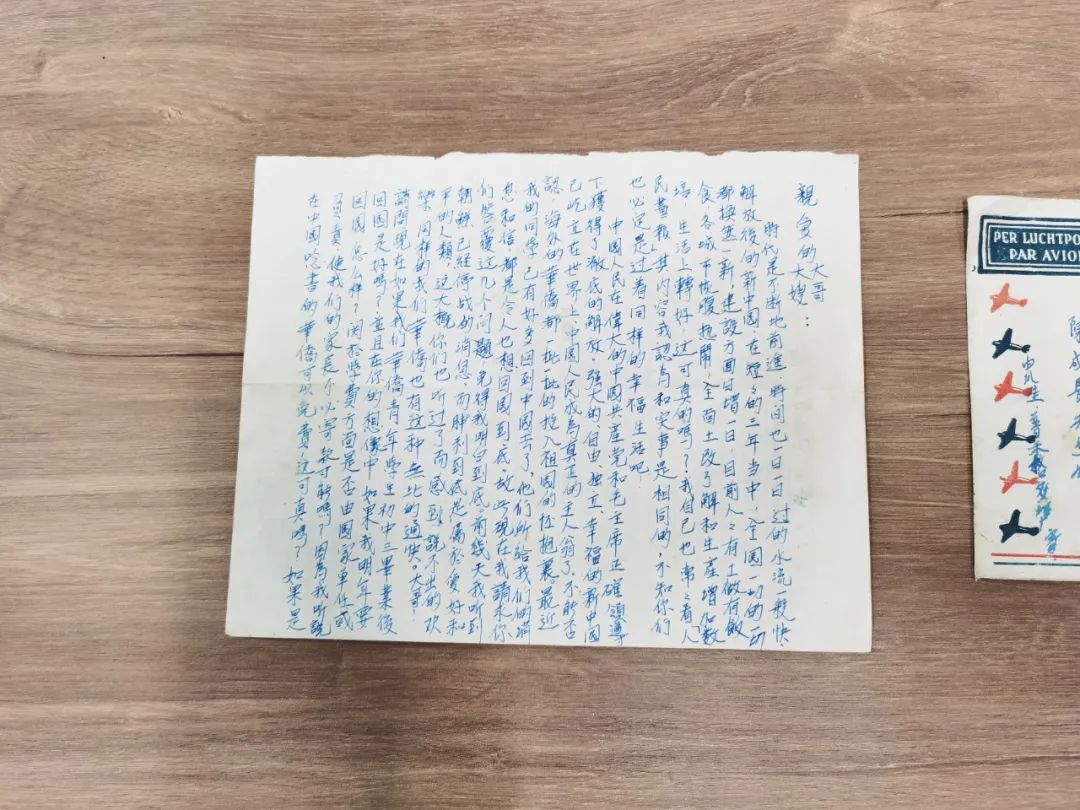 親愛的大哥
大嫂：
時代是不断地前進，時间也一日一日過的水流一般快，
解放後的新中國，在短々的三年当中，全國一切的一切
都換然一新，建設方面日增一日，目前人々有工做有飯
食各城市恢腹热鬧，全面土改了解和生產增加数
倍，生活上轉好，这可真的嗎？我自己也常々看人
民畫報，其内容我認為和实事是相同的，不知你们
也必定是过着同样的幸福生活吧！
中國人民在偉大的中國共產党和毛主席正確領導
下獲得了澈底的解放，強大的自由、独立、幸福的新中国
已屹立在世界上，中國人民成為真正的主人翁了，不能否
認，海外的華僑都一批一批的投入祖國的怀抱裏。最近
我的同学，已有好多回到中國去了，他们所給我们的
想和信都是令人也想回國，到底故此現在我請求你
们答覆这九个问題，免得我明白到底。前幾天我听到
朝鮮已經停战的消息，而勝利到底是屬於愛好和
平的人類，这大概你们也听过了，而感到說不出的欢
樂，同样的我们華僑也有这种無比的通快。大哥：
請問現在如果我们華僑青年学生初中三畢業後
回国是好嗎？並且在你的想像中如果我明年要
回國怎么样？関於学費方面是否由國家里任或
負責，使我们的家長不必寄款才能嗎？因為我听說
在中國唸書的華僑可以免費，这可真嗎？如果是
PER LUCHTPO
PAR AVIO
陳成